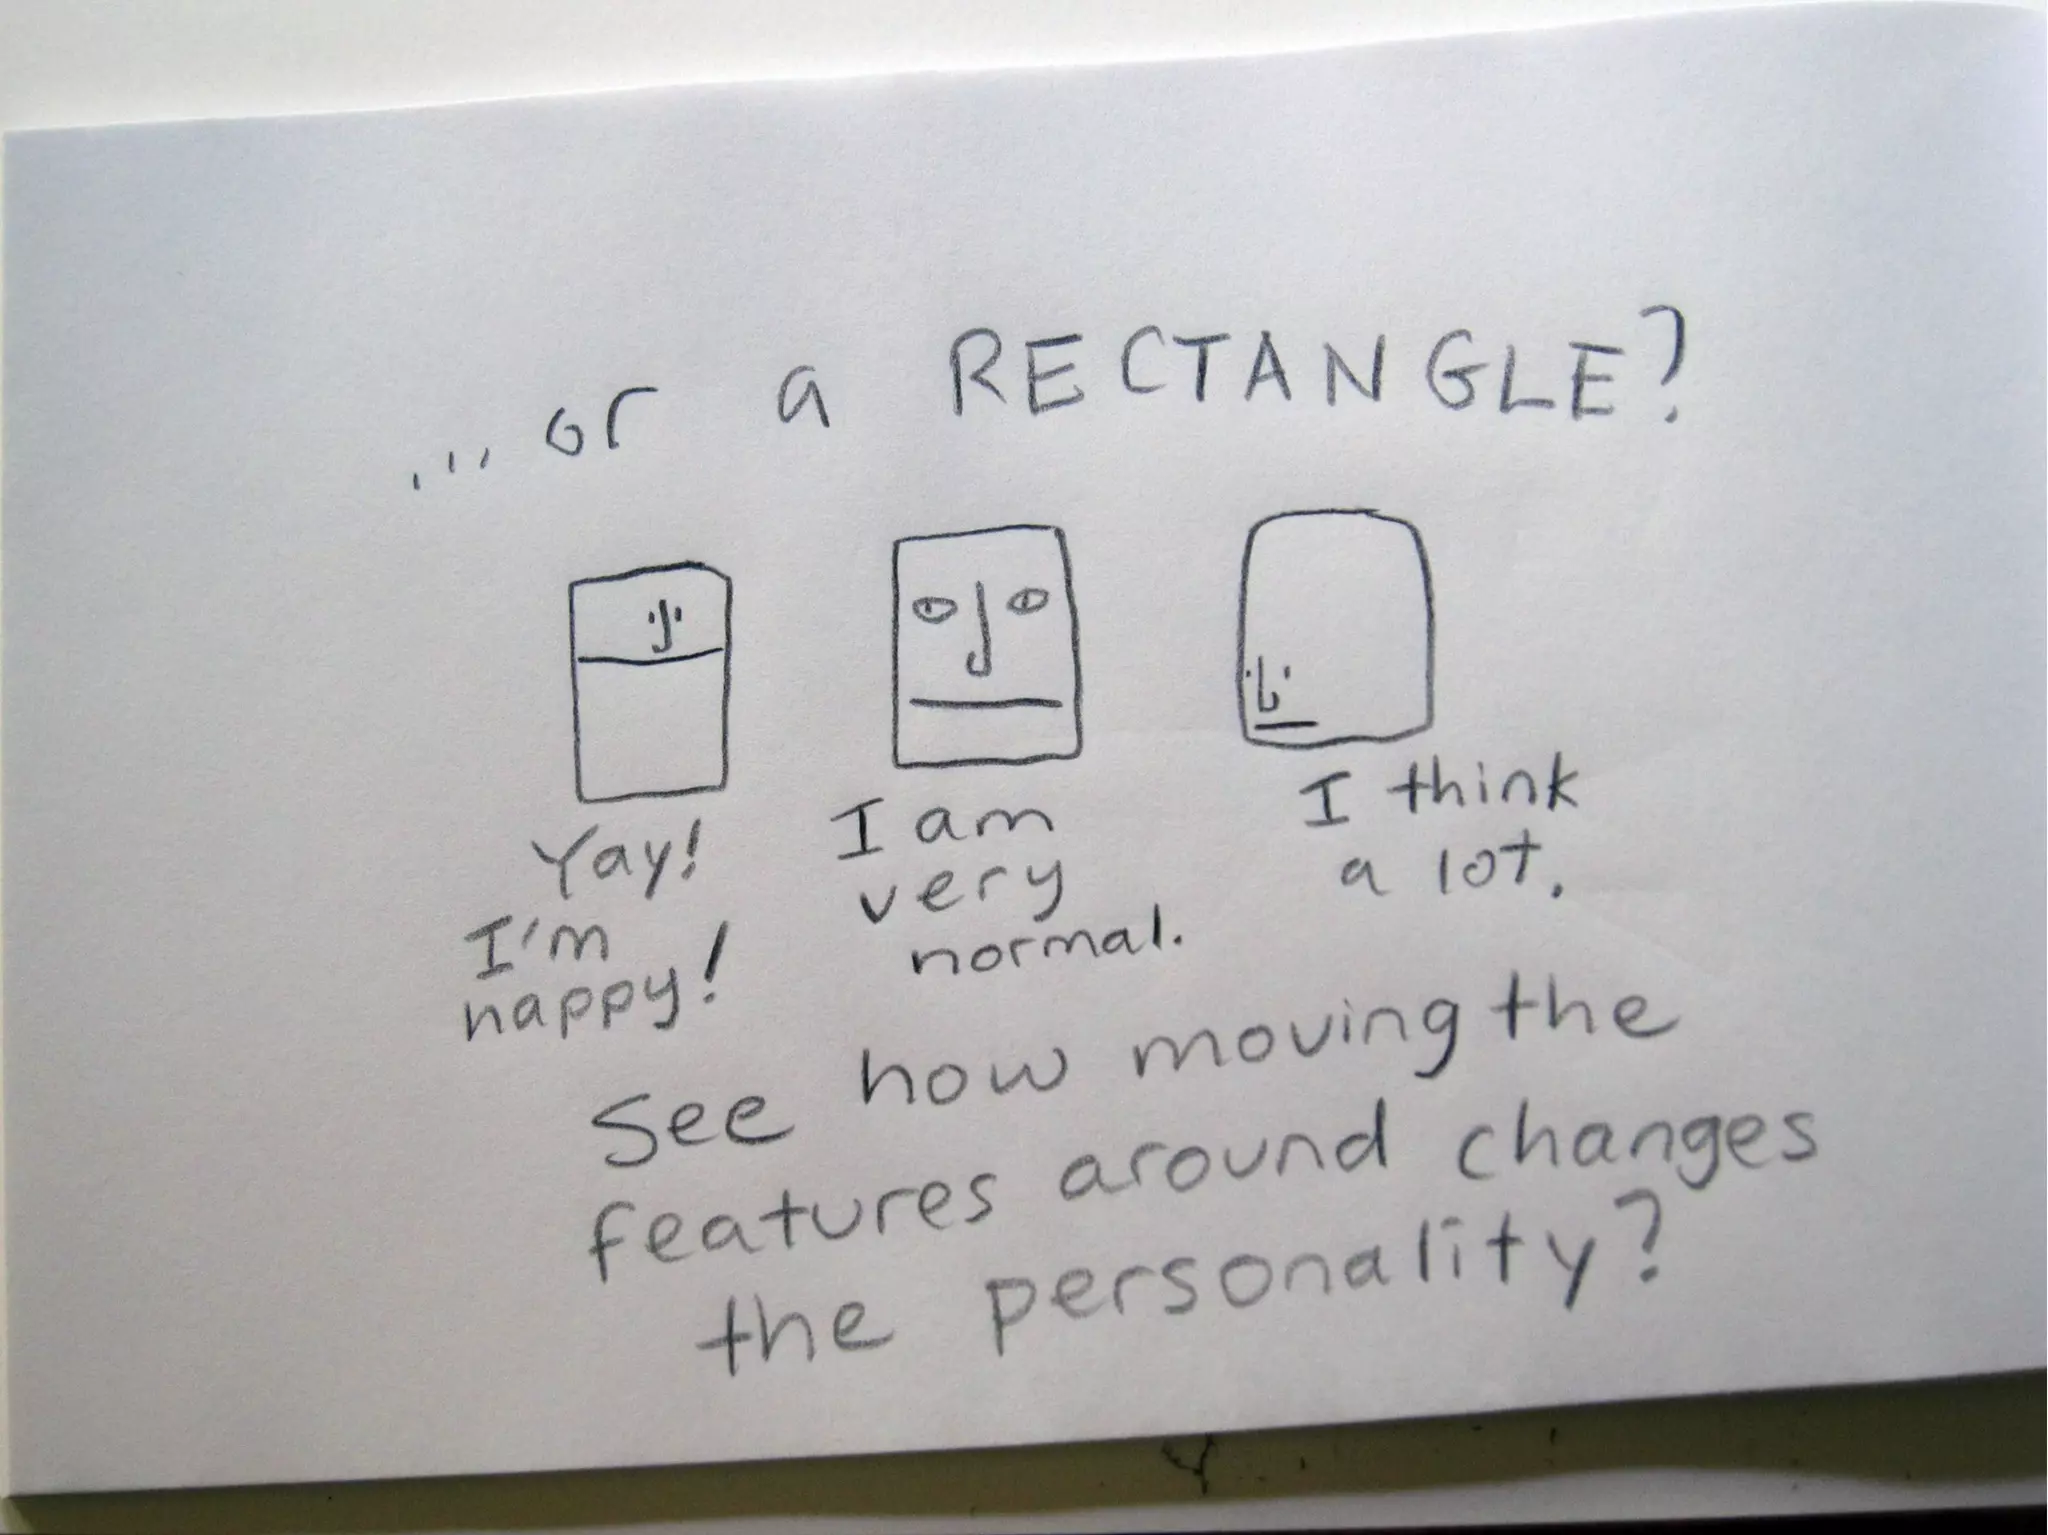 ...or a RECTANGLE?
Yay!
I'm
happy!
I am
very
normal.
I think
a lot.
See how moving the
features around changes
the personality?